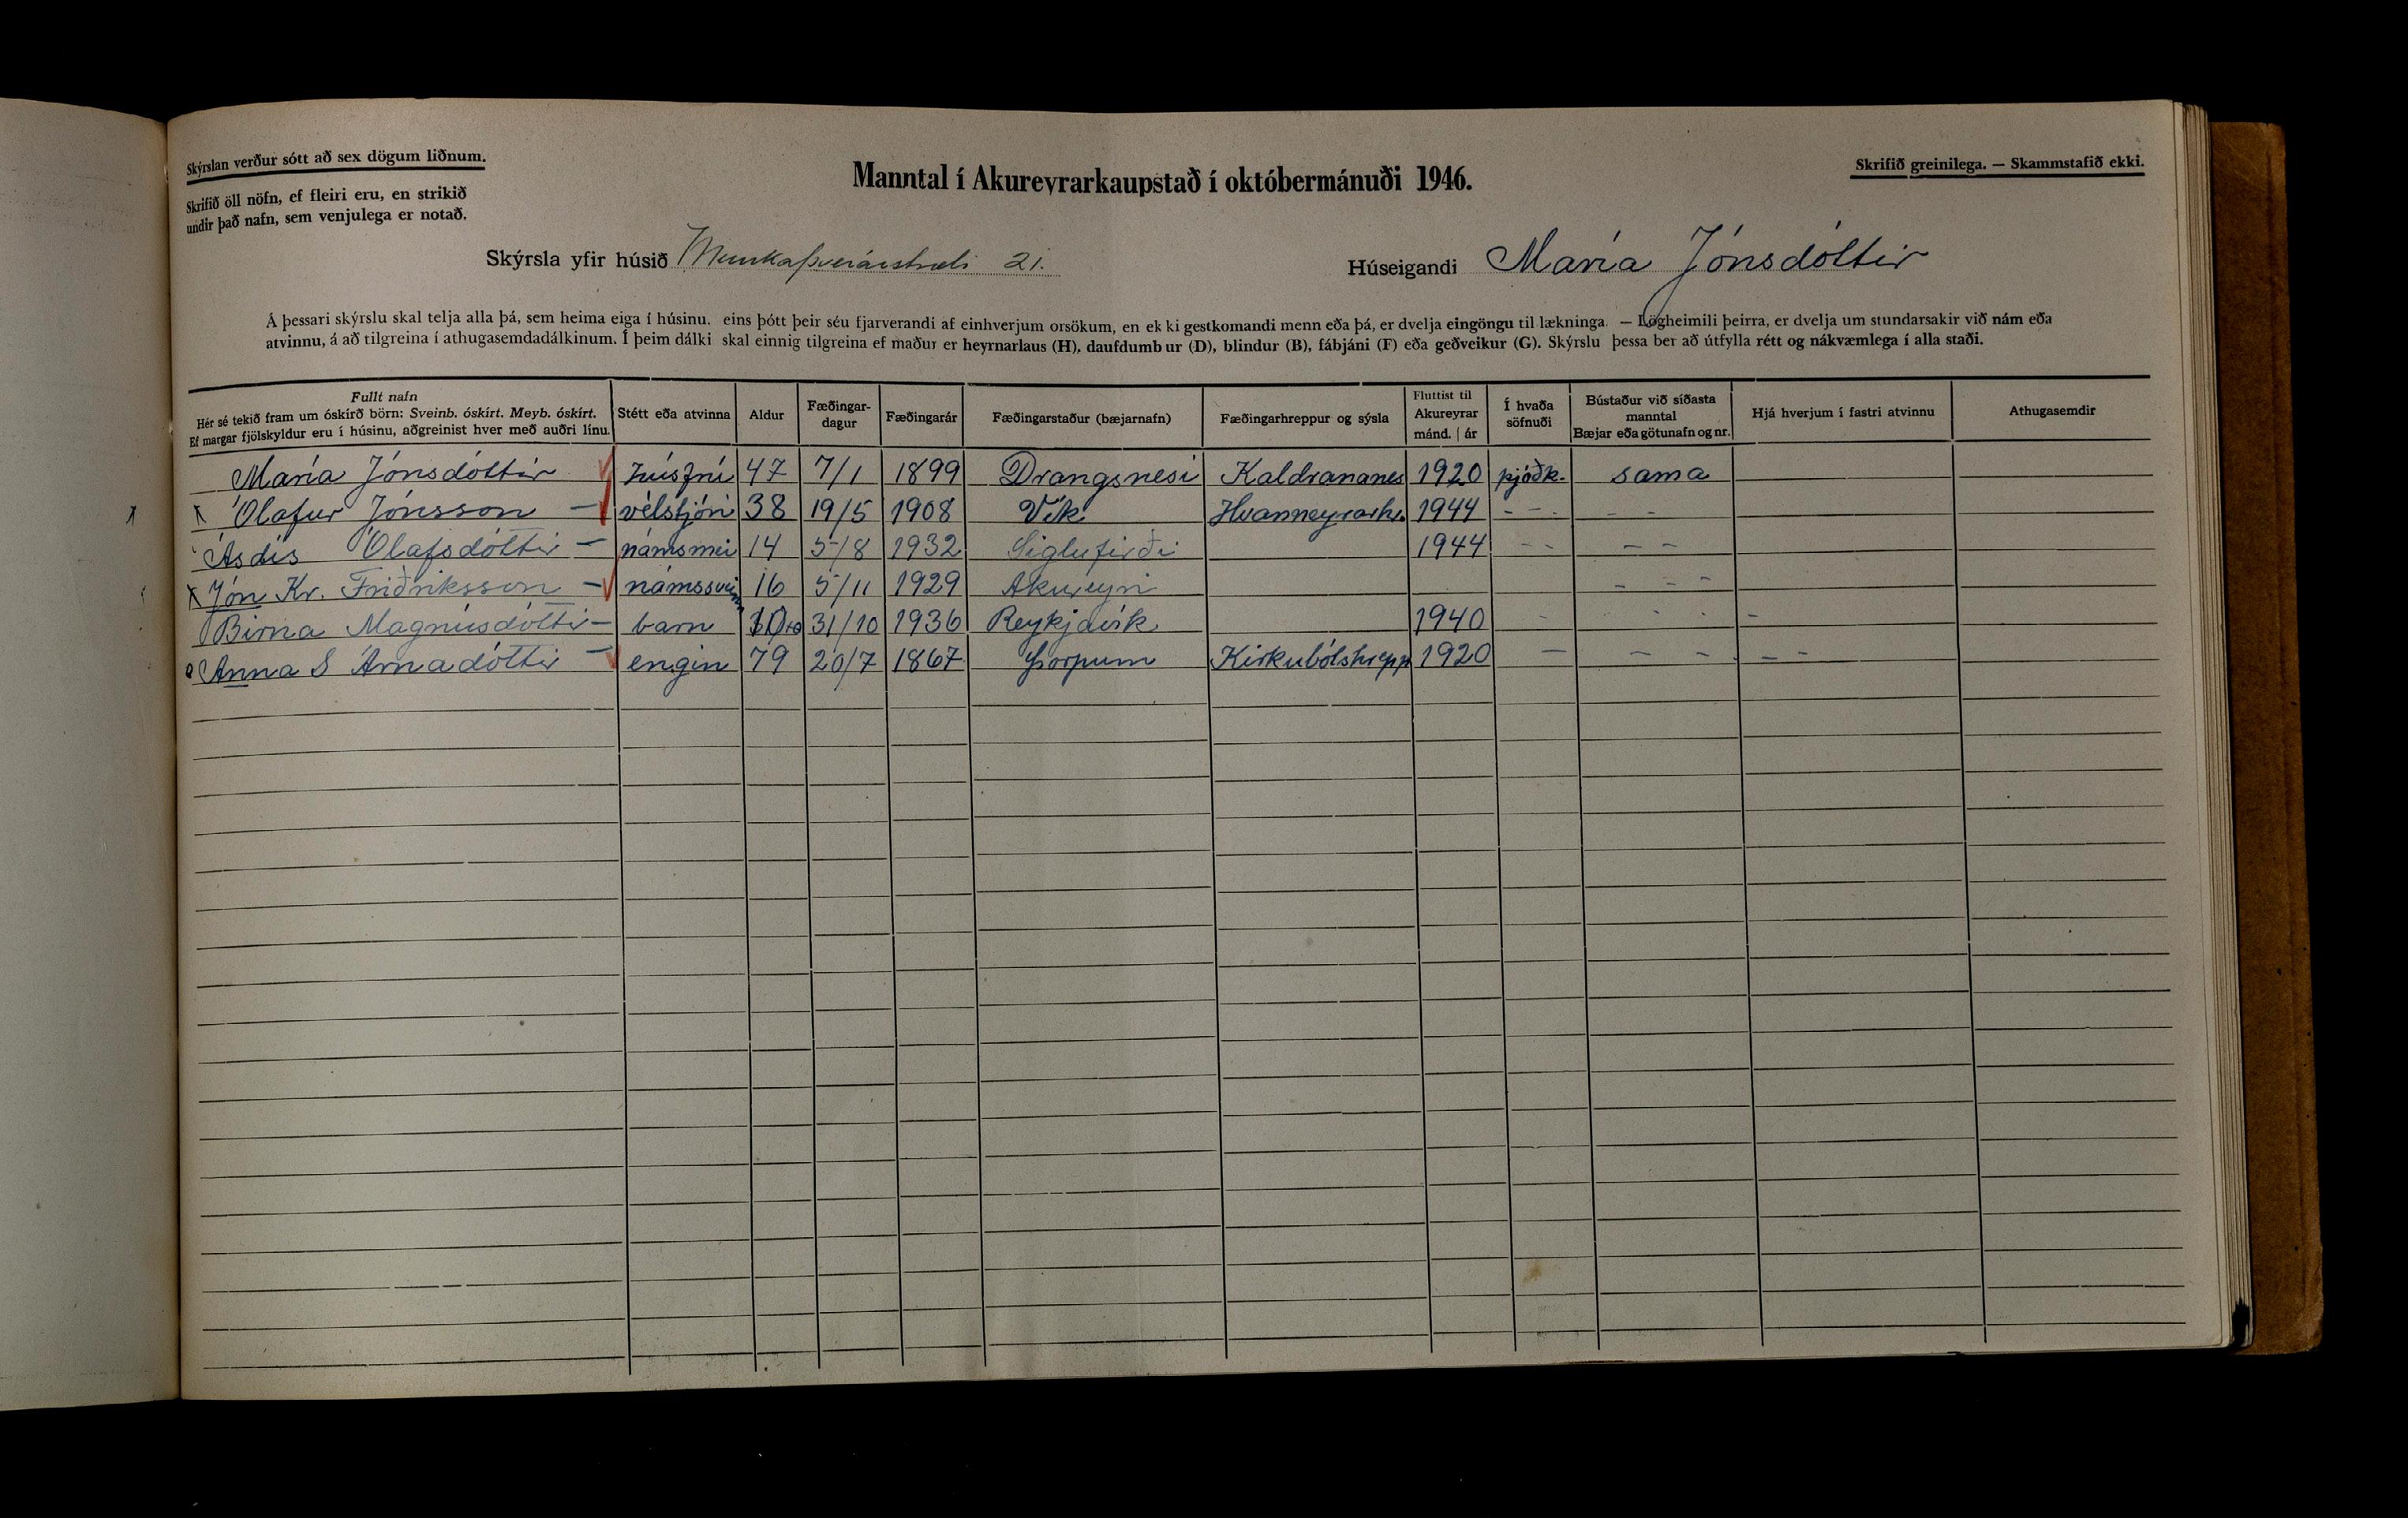 Skýrslan verður sótt að sex dögum liðnum.
Skrifið öll nöfn, ef fleiri eru, en strikið
undir það nafn, sem venjulega er notað.
Manntal í Akureyrarkaupstað í októbermánuði 1946.
Skrifið greinilega. — Skammstafið ekki.
Skýrsla yfir húsið Munkaþverárstræti 21.
Húseigandi María Jónsdóttir
Á þessari skýrslu skal telja alla þá, sem heima eiga í húsinu. eins þótt þeir séu fjarverandi af einhverjum orsökum, en ekki gestkomandi menn eða þá, er dvelja eingöngu til lækninga. — Lögheimili þeirra, er dvelja um stundarsakir við nám eða
atvinnu, á að tilgreina í athugasemdadálkinum. Í þeim dálki skal einnig tilgreina ef maður er heyrnarlaus (H), daufdumbur (D), blindur (B), fábjáni (F) eða geðveikur (G). Skýrslu þessa ber að útfylla rétt og nákvæmlega í alla staði.
Fullt nafn
Hér sé tekið fram um óskírð börn: Sveinb. óskírt. Meyb. óskírt.
Ef margar fjölskyldur eru í húsinu, aðgreinist hver með auðri línu.
Stétt eða atvinna
Aldur
Fæðingar-
dagur
Fæðingarár
Fæðingarstaður (bæjarnafn)
Fæðingarhreppur og sýsla
Fluttist til
Akureyrar
mánd. | ár
Í hvaða
söfnuði
Bústaður við síðasta
manntal
Bæjar eða götunafn og nr.
Hjá hverjum í fastri atvinnu
Athugasemdir
María Jónsdóttir húsfrú 47 7/1 1899 Drangsnesi Kaldrananes 1920 þjóðk. sama
Ólafur Jónsson — vélstjóri 38 19/5 1908 Vík Hvanneyrarhr. 1944 - - - - -
Ásdís Ólafsdóttir — námsmei 14 5/8 1932 Siglufirði 1944 - - - -
Jón Kr. Friðriksson — námssvein 16 5/11 1929 Akureyri - - -
Birna Magnúsdótti — barn 10 31/10 1936 Reykjavík 1940 - - - -
Anna S Árnadóttir — engin 79 20/7 1867 Þorpum Kirkubólshrepp 1920 — - - - - -